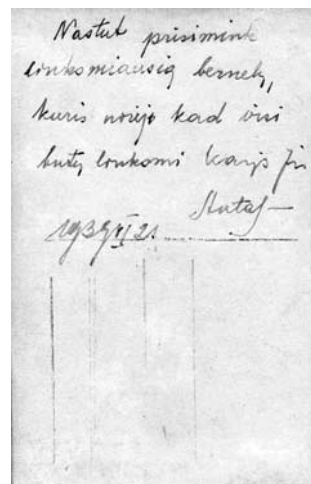 Nastut prisimink
linksmiausią bernelį,
kuris norėjo kad visi
butų linksmi kaip jis
1939 VI 21.